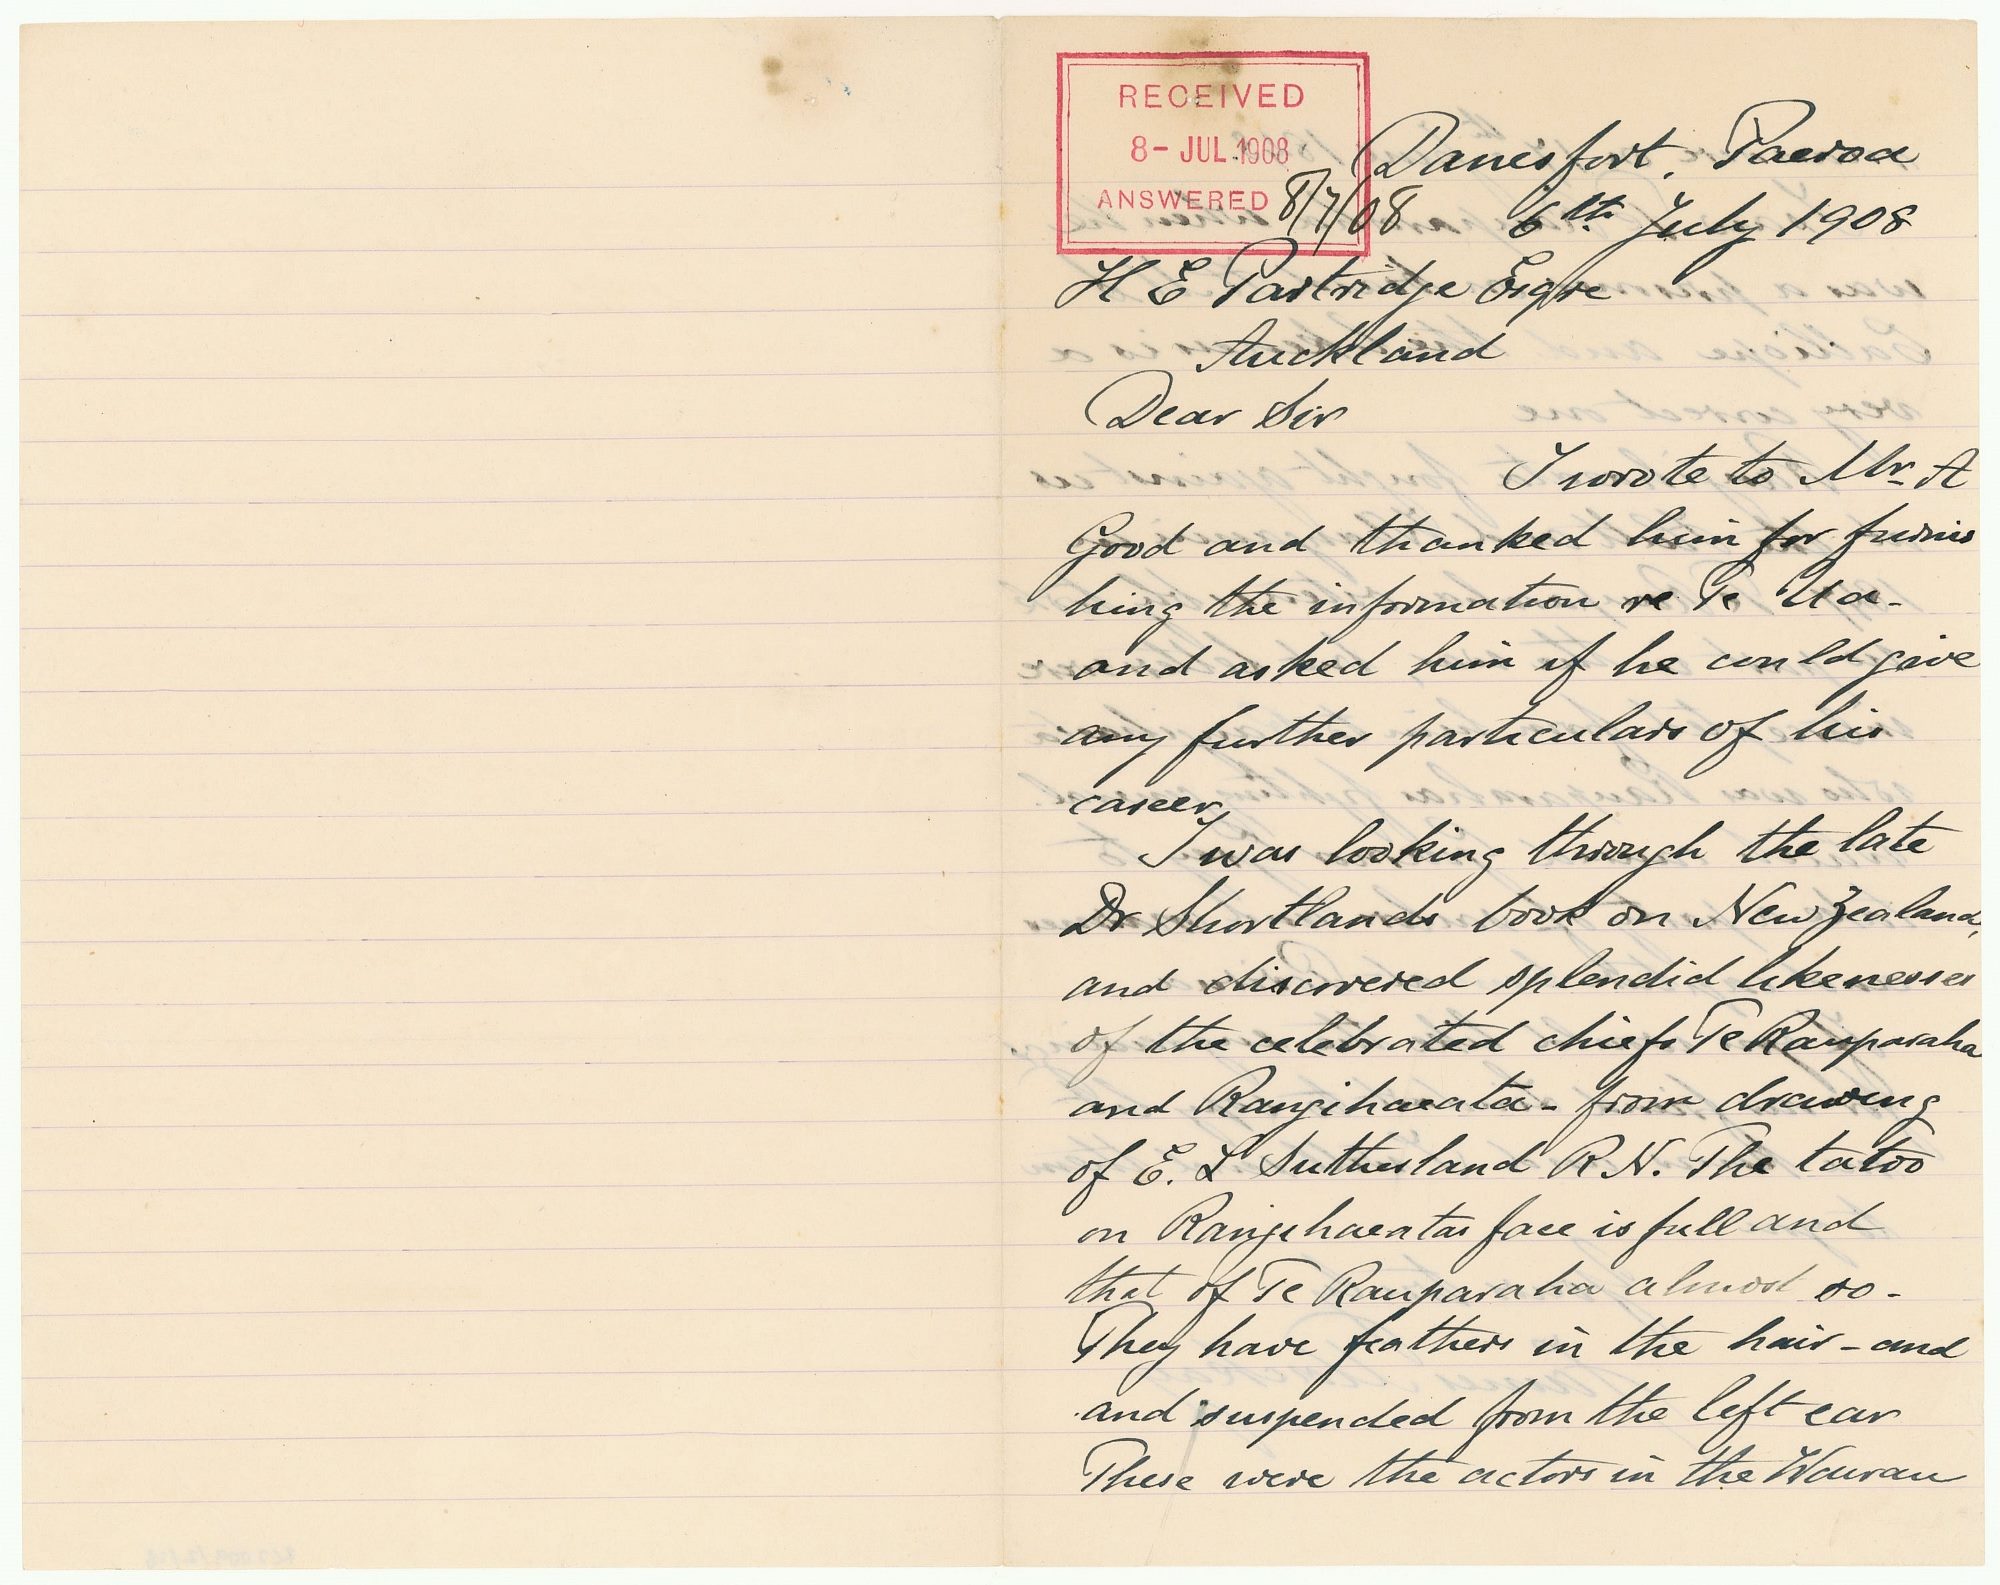 RECEIVED
8- JUL 1908
ANSWERED 8/7/08
Danesfort, Paeroa
6th July 1908
H E Partridge Esqre
Auckland
Dear Sir
I wrote to Mr A
Good and thanked him for furnis
hing the information re Te Ua-
and asked him if he could give
any further particulars of his
career.
I was looking through the late
Dr Shortlands book on New Zealand,
and discovered splendid likenesses
of the celebrated chiefs Te Rauparaha
and Rangihaeata - from drawing
of E. L Sutherland R N. The tatoo
on Rangihaeatas face is full and
that of Te Rauparaha almost so -
They have feathers in the hair - and
and suspended from the left ear
These were the actors in the Wairau